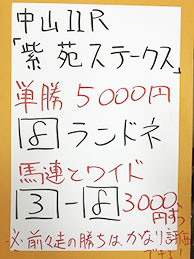 中山11R
「紫苑ステークス」
単勝5000円
8 ランドネ
馬連とワイド
3-8 3000円ずつ
※前々走の勝ちは、かなり評価できる!